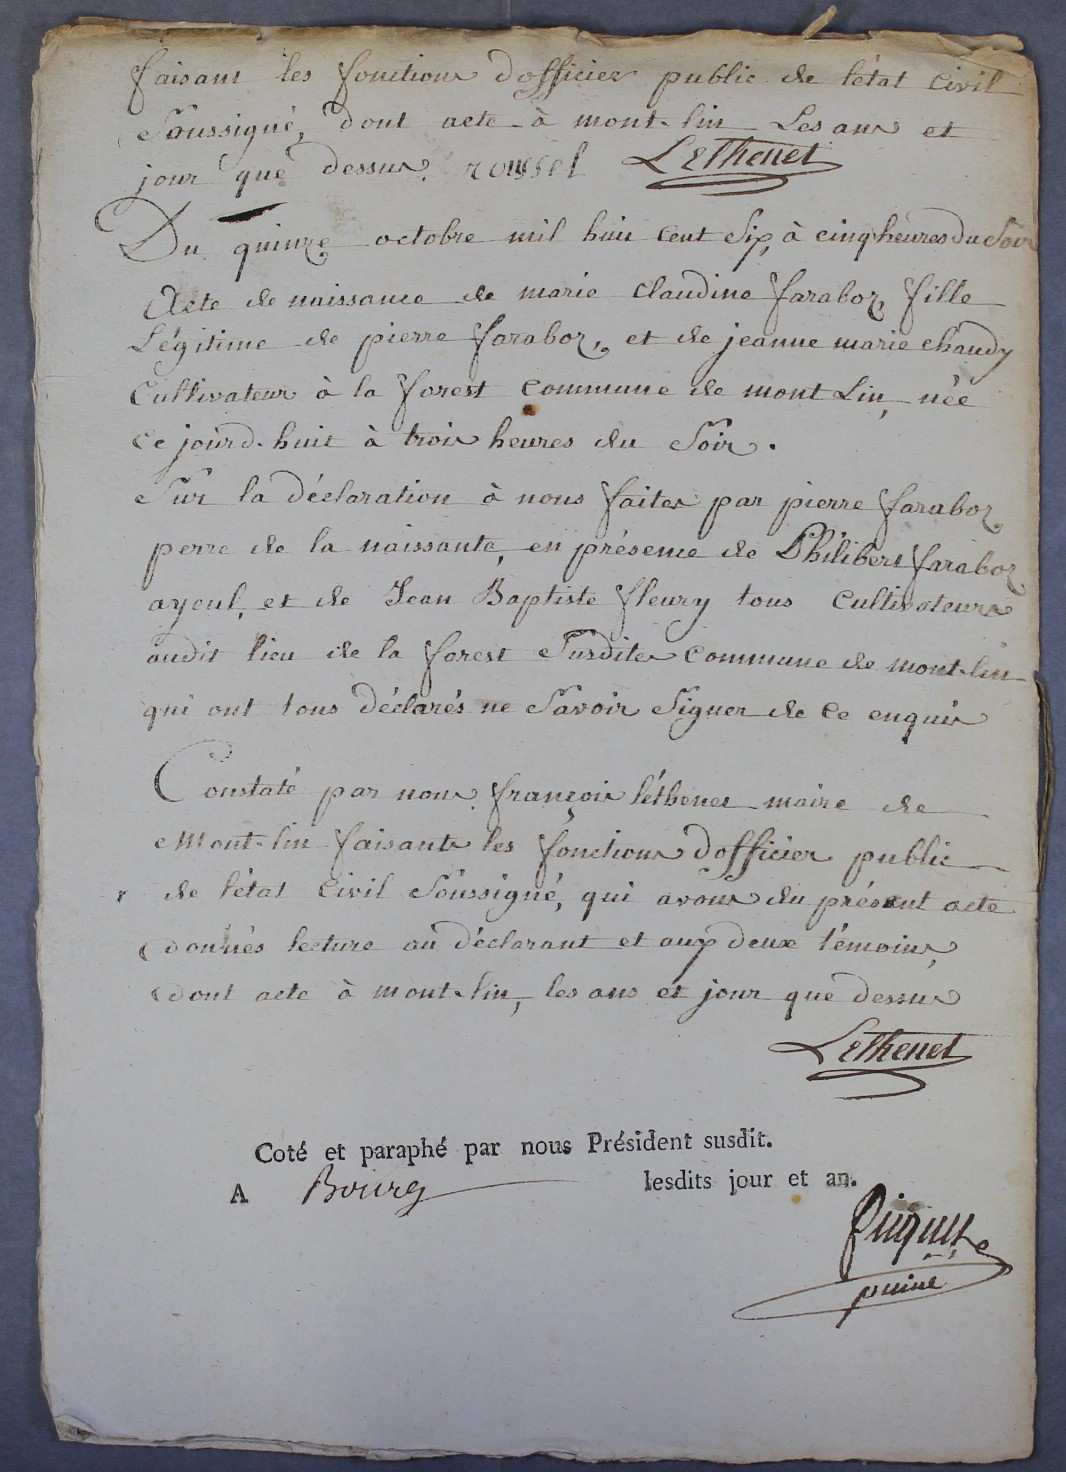 faisant les fonctions dofficier public de létat civil
Soussigné, dont acte à mont-lin Les ans et
jour que dessus. roussel Lethenet
Du quinze octobre mil huit cent Six, à cinq heures du Soir
Acte de naissance de marie claudine faraboz, fille
Légitime de pierre faraboz, et de jeanne marie chaudy
Cultivateurs à la forest commune de mont Lin, née
ce jourd-huit à trois heures du Soir.
Sur la déclaration à nous faites par pierre faraboz
perre de la naissante, en présence de Philibert faraboz
ayeul, et de Jean Baptiste fleury tous Cultivateurs
audit lieu de la forest Susdites commune de mont-lin
qui ont tous déclarés ne Savoir Signer de ce enquis
Constaté par nous françois léthenet maire de
Mont-lin faisants les fonctions dofficier public
de létat Civil Soussigné, qui avons du présent acte
donnés lecture au déclarant et aux deux témoins,
dont acte à mont-lin, les ans et jour que dessus
Lethenet
Coté et paraphé par nous Président susdit.
A Bourg lesdits jour et an.
puiné